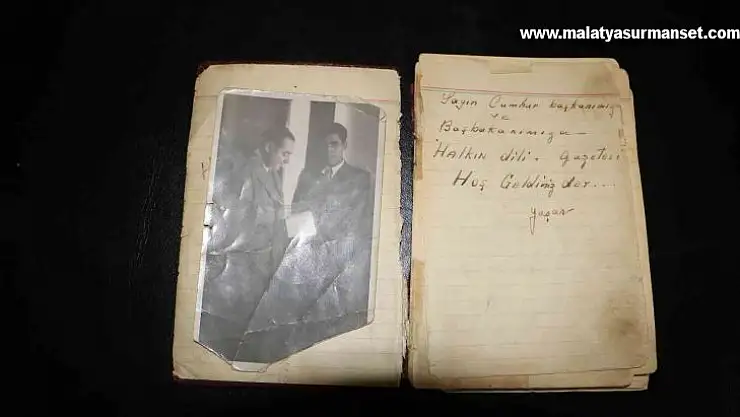 www.malatyasurmanset.com
Sayın Cumhur başkanımıza
ve
Başbakanımıza -
HALKIN dili. gazetesi
Hoş Geldiniz der...
yaşar